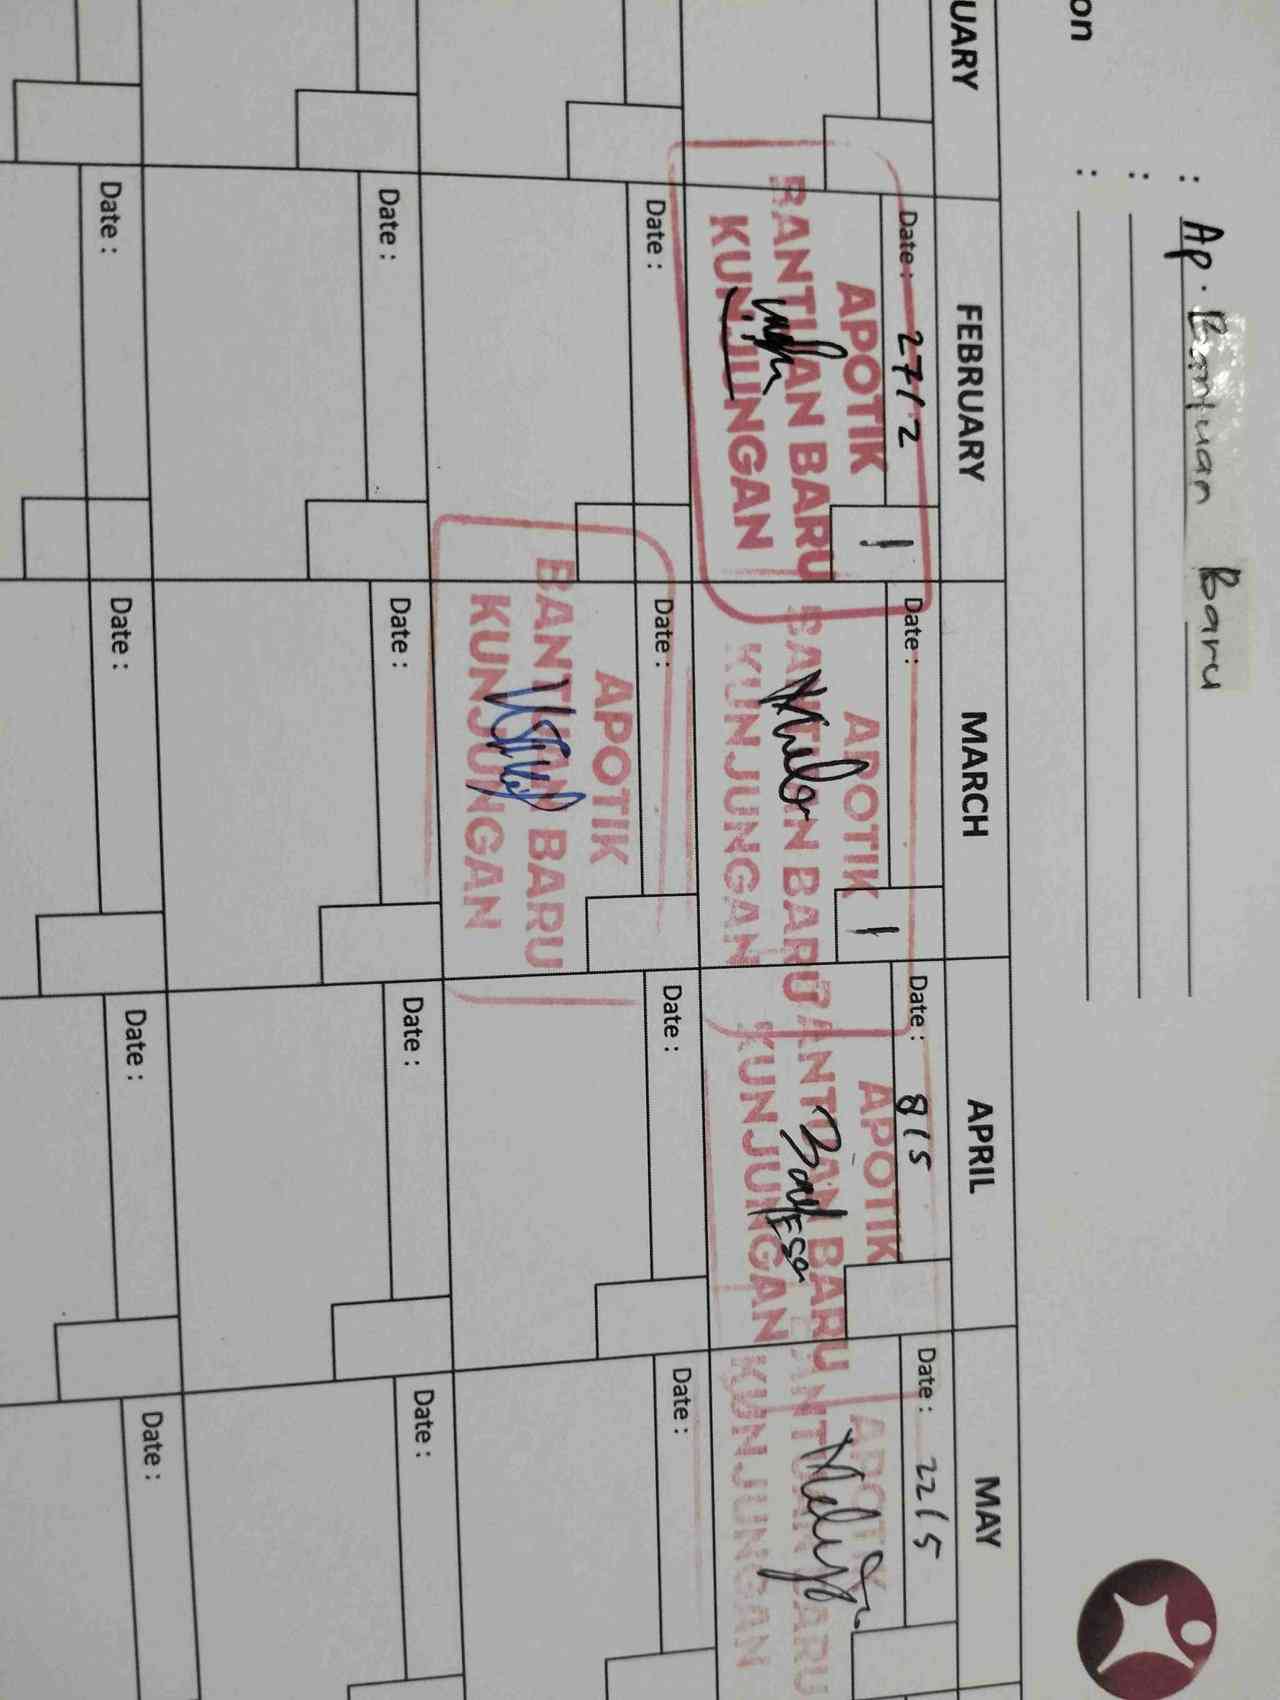 on
: Ap. Bantuan Baru
:
:
UARY FEBRUARY MARCH APRIL MAY
Date : 27/2 Date : Date : 8/5 Date : 22/5
1 1
APOTIK
BANTUAN BARU
KUNJUNGAN
APOTIK
BANTUAN BARU
KUNJUNGAN
APOTIK
BANTUAN BARU
KUNJUNGAN
APOTIK
BANTUAN BARU
KUNJUNGAN
Date : Date : Date : Date :
APOTIK
BANTUAN BARU
KUNJUNGAN
Date : Date : Date : Date :
Date : Date : Date : Date :